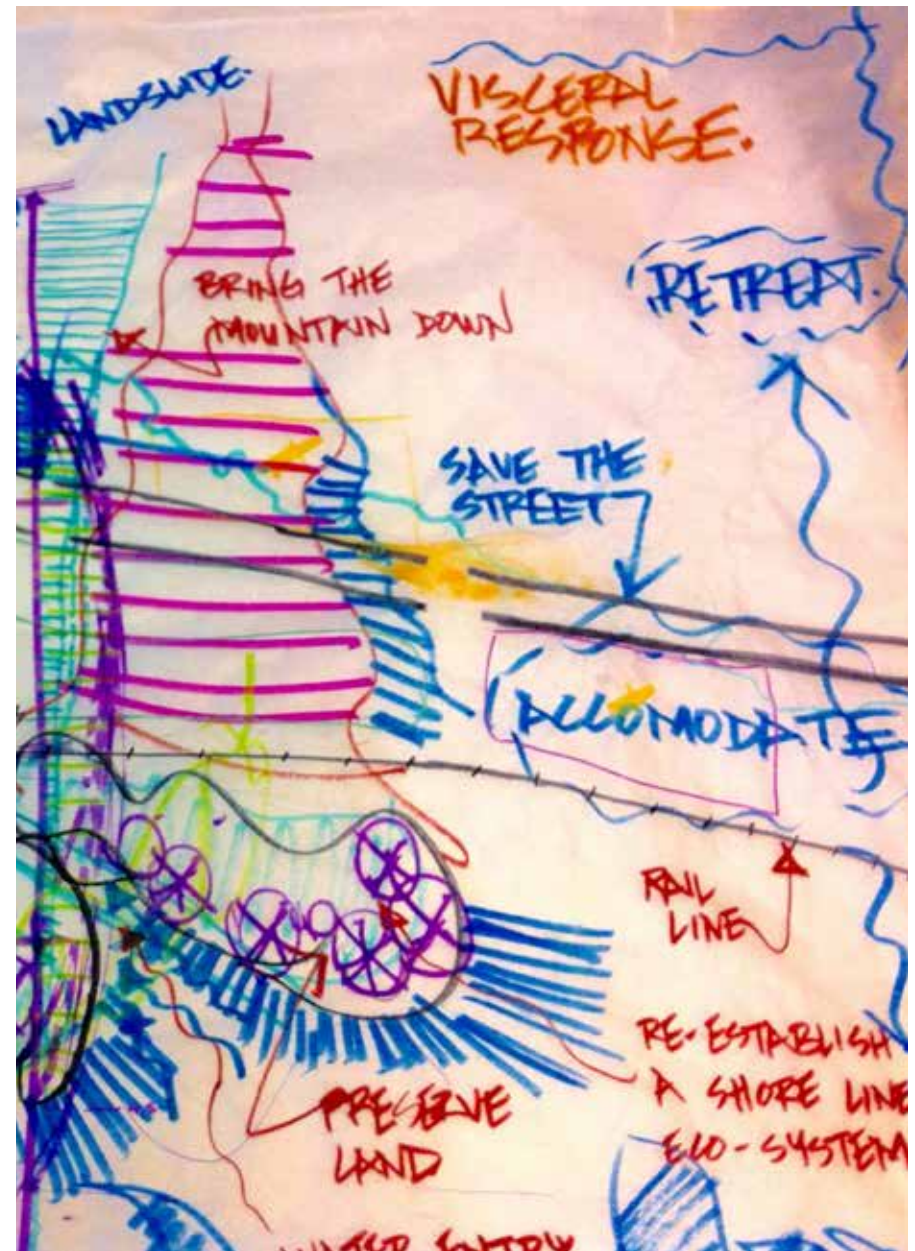 LANDSLIDE.
VISCERAL
RESPONSE.
BRING THE
MOUNTAIN DOWN
RETREAT.
SAVE THE
STREET
ACCOMODATE
RAIL
LINE
RE-ESTABLISH
A SHORE LINE
ECO-SYSTEM
PRESERVE
LAND
WATER ENTRY